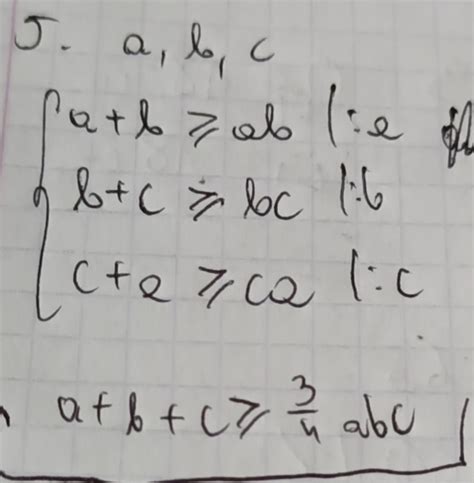 5. a, b, c
a+b ≥ ab |:a
b+c ≥ bc |:b
c+a ≥ ca |:c
a+b+c ≥ 3/4 abc